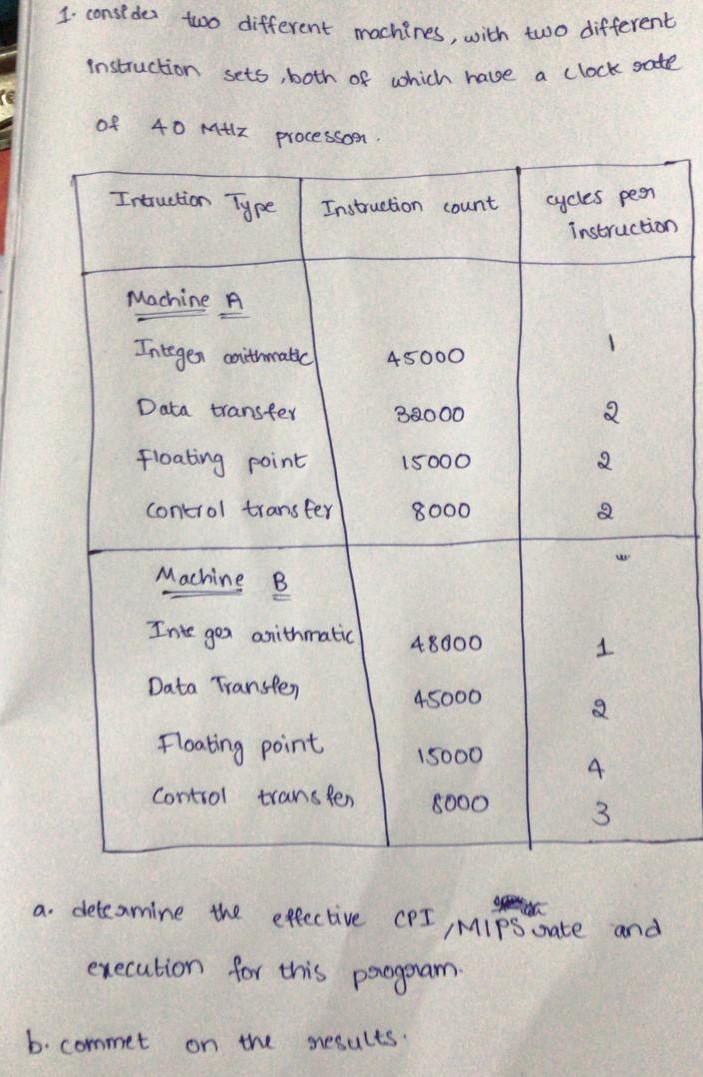 1. consider two different machines, with two different
instruction sets, both of which have a clock rate
of 40 MHz processor.
Intruction Type | Instruction count | cycles per instruction
Machine A
Integer arithmatic 45000 1
Data transfer 32000 2
Floating point 15000 2
Control transfer 8000 2
Machine B
Integer arithmatic 48000 1
Data Transfer 45000 2
Floating point 15000 4
Control transfer 8000 3
a. determine the effective CPI, MIPS rate and
execution for this program.
b. commet on the results.